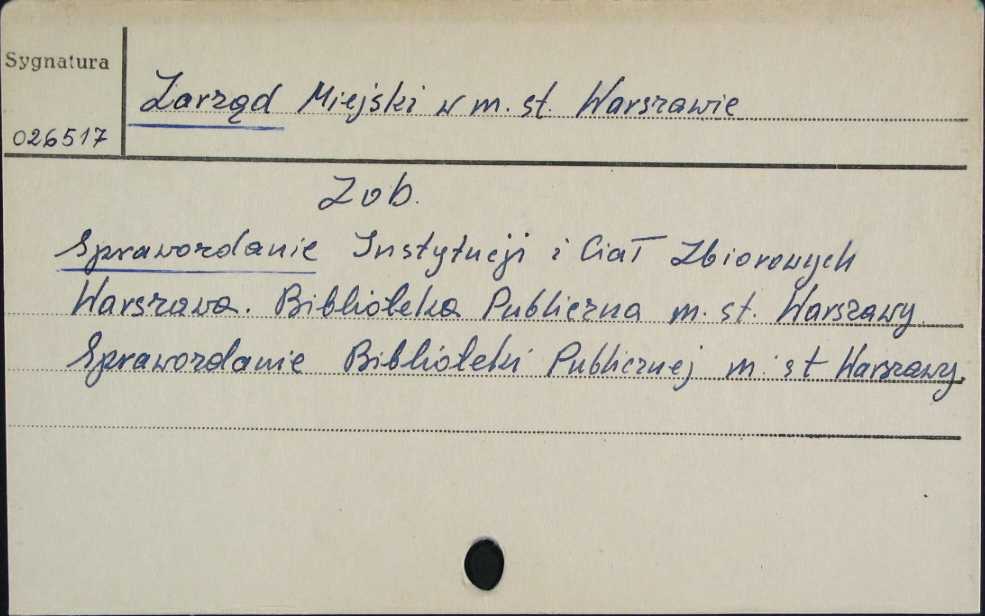 Sygnatura
Zarząd Miejski w m. st. Warszawie
026517
Zob.
Sprawozdanie Instytucji i Ciał Zbiorowych
Warszawa. Biblioteka Publiczna m. st. Warszawy
Sprawozdanie Biblioteki Publicznej m. st Warszawy.